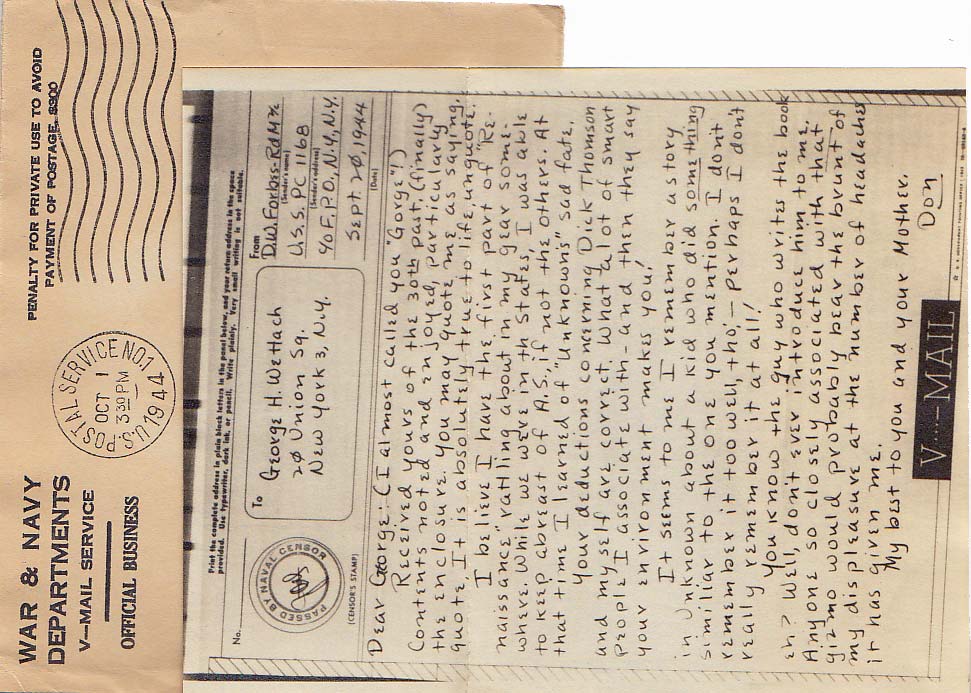 WAR & NAVY
DEPARTMENTS
V-MAIL SERVICE
OFFICIAL BUSINESS
U.S. POSTAL SERVICE NO.1
OCT 1
330 PM
1944
PENALTY FOR PRIVATE USE TO AVOID
PAYMENT OF POSTAGE, $300
Print the complete address in plain block letters in the panel below, and your return address in the space
provided. Use typewriter, dark ink, or pencil. Write plainly. Very small writing is not suitable.
No.
PASSED BY NAVAL CENSOR
(CENSOR'S STAMP)
To
George H. Wetlach
20 Union Sq.
New York 3, N.Y.
From
D.W. Forbes-RdM 3/c
(Sender's name)
U.S.S. PC 1168
(Sender's address)
c/o F.P.O., N.Y., N.Y.
Sept. 20, 1944
(Date)
Dear George: (I almost called you "George"!)
Received yours of the 30th past, (finally)
Contents noted and enjoyed, particularly
the enclosure. You may quote me as saying,
quote, It is absolutely true to life, unquote.
I believe I have the first part of "Re-
naissance" rattling about in my gear some-
where. While we were in the States, I was able
to keep abreast of A.S., if not the others. At
that time I learned of "Unknowns" sad fate.
Your deductions concerning Dick Thomson
and myself are correct. What a lot of smart
people I associate with - and then they say
your environment makes you!
It seems to me I remember a story
in Unknown about a kid who did something
similiar to the one you mention. I don't
remember it too well, tho', - perhaps I dont
really remember it at all!
You know the guy who writes the book
eh? Well, dont ever introduce him to me.
Anyone so closely associated with that
gizmo would probably bear the brunt of
my displeasure at the number of headaches
it has given me.
My best to you and your Mother.
Don
V....-MAIL